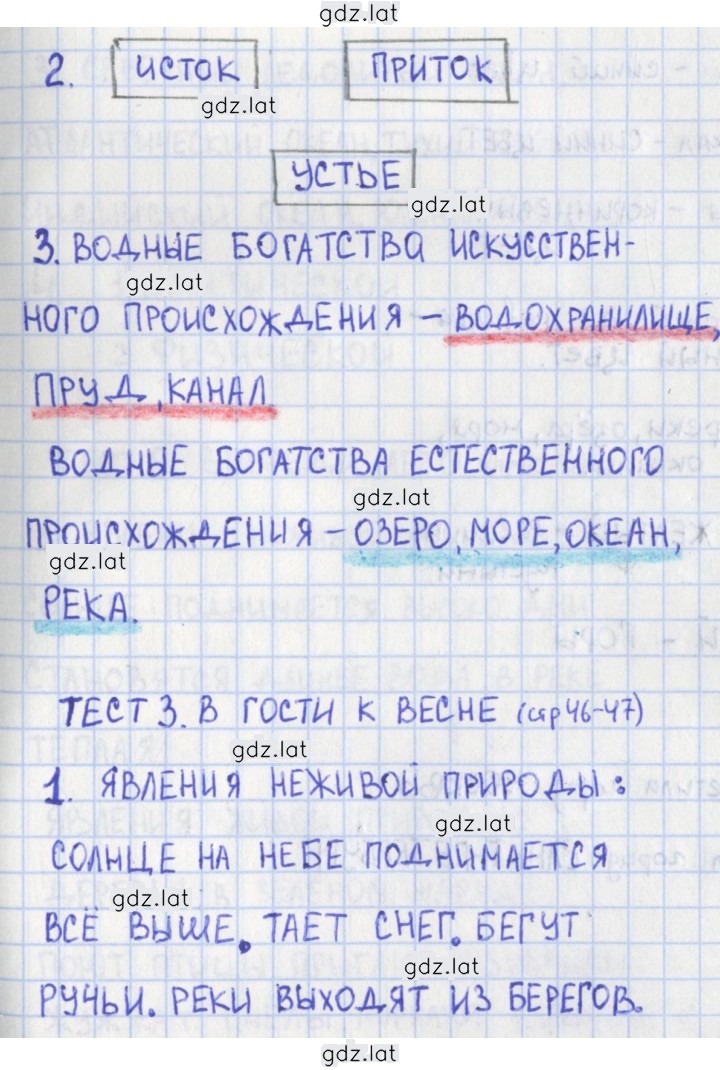 gdz.lat
2. ИСТОК ПРИТОК
gdz.lat
УСТЬЕ
gdz.lat
3. ВОДНЫЕ БОГАТСТВА ИСКУССТВЕН-
gdz.lat
НОГО ПРОИСХОЖДЕНИЯ – ВОДОХРАНИЛИЩЕ,
ПРУД, КАНАЛ
gdz.lat
ВОДНЫЕ БОГАТСТВА ЕСТЕСТВЕННОГО
gdz.lat
ПРОИСХОЖДЕНИЯ – ОЗЕРО, МОРЕ, ОКЕАН,
gdz.lat
РЕКА.
ТЕСТ 3. В ГОСТИ К ВЕСНЕ (стр 46-47)
gdz.lat
1. ЯВЛЕНИЯ НЕЖИВОЙ ПРИРОДЫ:
gdz.lat
СОЛНЦЕ НА НЕБЕ ПОДНИМАЕТСЯ
gdz.lat
ВСЁ ВЫШЕ. ТАЕТ СНЕГ. БЕГУТ
gdz.lat
РУЧЬИ. РЕКИ ВЫХОДЯТ ИЗ БЕРЕГОВ.
gdz.lat